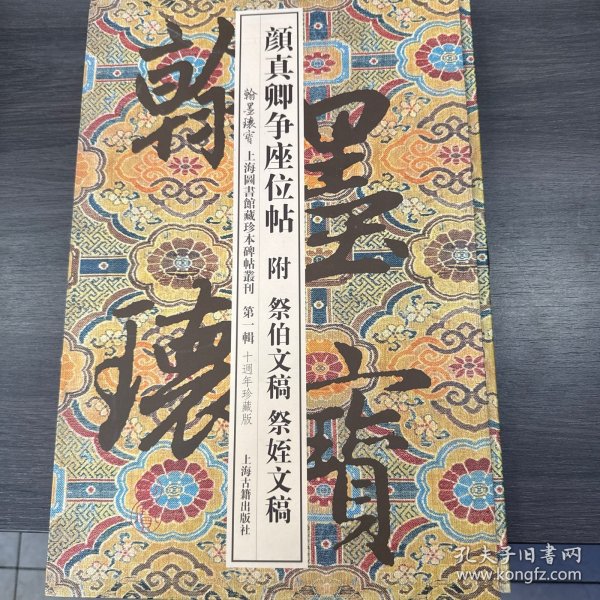 顔真卿争座位帖 附 祭伯文稿 祭姪文稿
翰墨瓌寶 上海圖書館藏珍本碑帖叢刊 第一輯 十週年珍藏版
上海古籍出版社
翰墨
瓌寶
孔夫子旧书网
www.kongfz.com